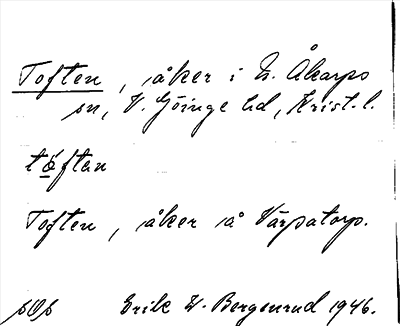 Toften, åker i N. Åkarps
sn, V. Göinge hd, Krist. l.
tøftan
Toften, åker å Värpatorp.
sOs Erik W. Bergenrud 1946.